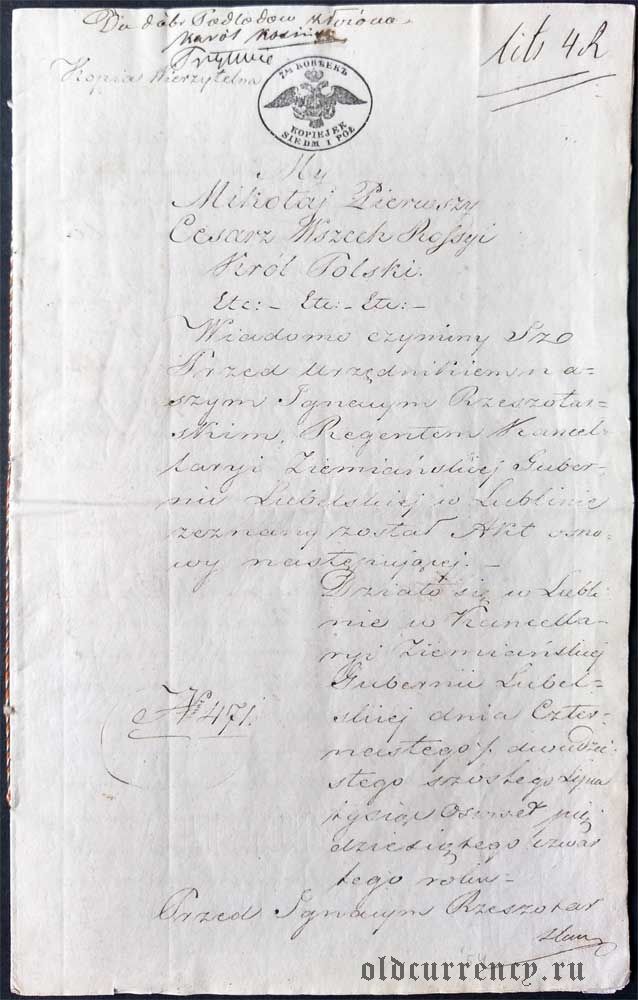 Do dóbr Podlodow złożona
Karol
lit: 4 R
Kopia Wierzytelna
7½ КОПѢЕКЪ
KOPIEJEK
SIEDM I PÓŁ
My
Mikołaj Pierwszy
Cesarz Wszech Rossyi
Król Polski.
Etc:- Etc:- Etc:-
Wiadomo czyniemy Iż
Przed Urzędnikiem na-
szym Ignacym Rzeszotar-
skim, Regentem Kancel-
laryi Ziemiańskiej Guber-
nii Lubelskiej w Lublinie
zeznany został Akt osno-
wy następującej.-
Działo się w Lubli-
nie w Kancella-
ryi Ziemiańskiej
Gubernii Lubel-
skiej dnia Czter-
nastego / dwudzie-
stego szóstego Lipca
tysiąc Ośmset pięć
dziesiątego czwar
tego roku-
№ 471.
Przed Ignacym Rzeszotar
skim
oldcurrency.ru